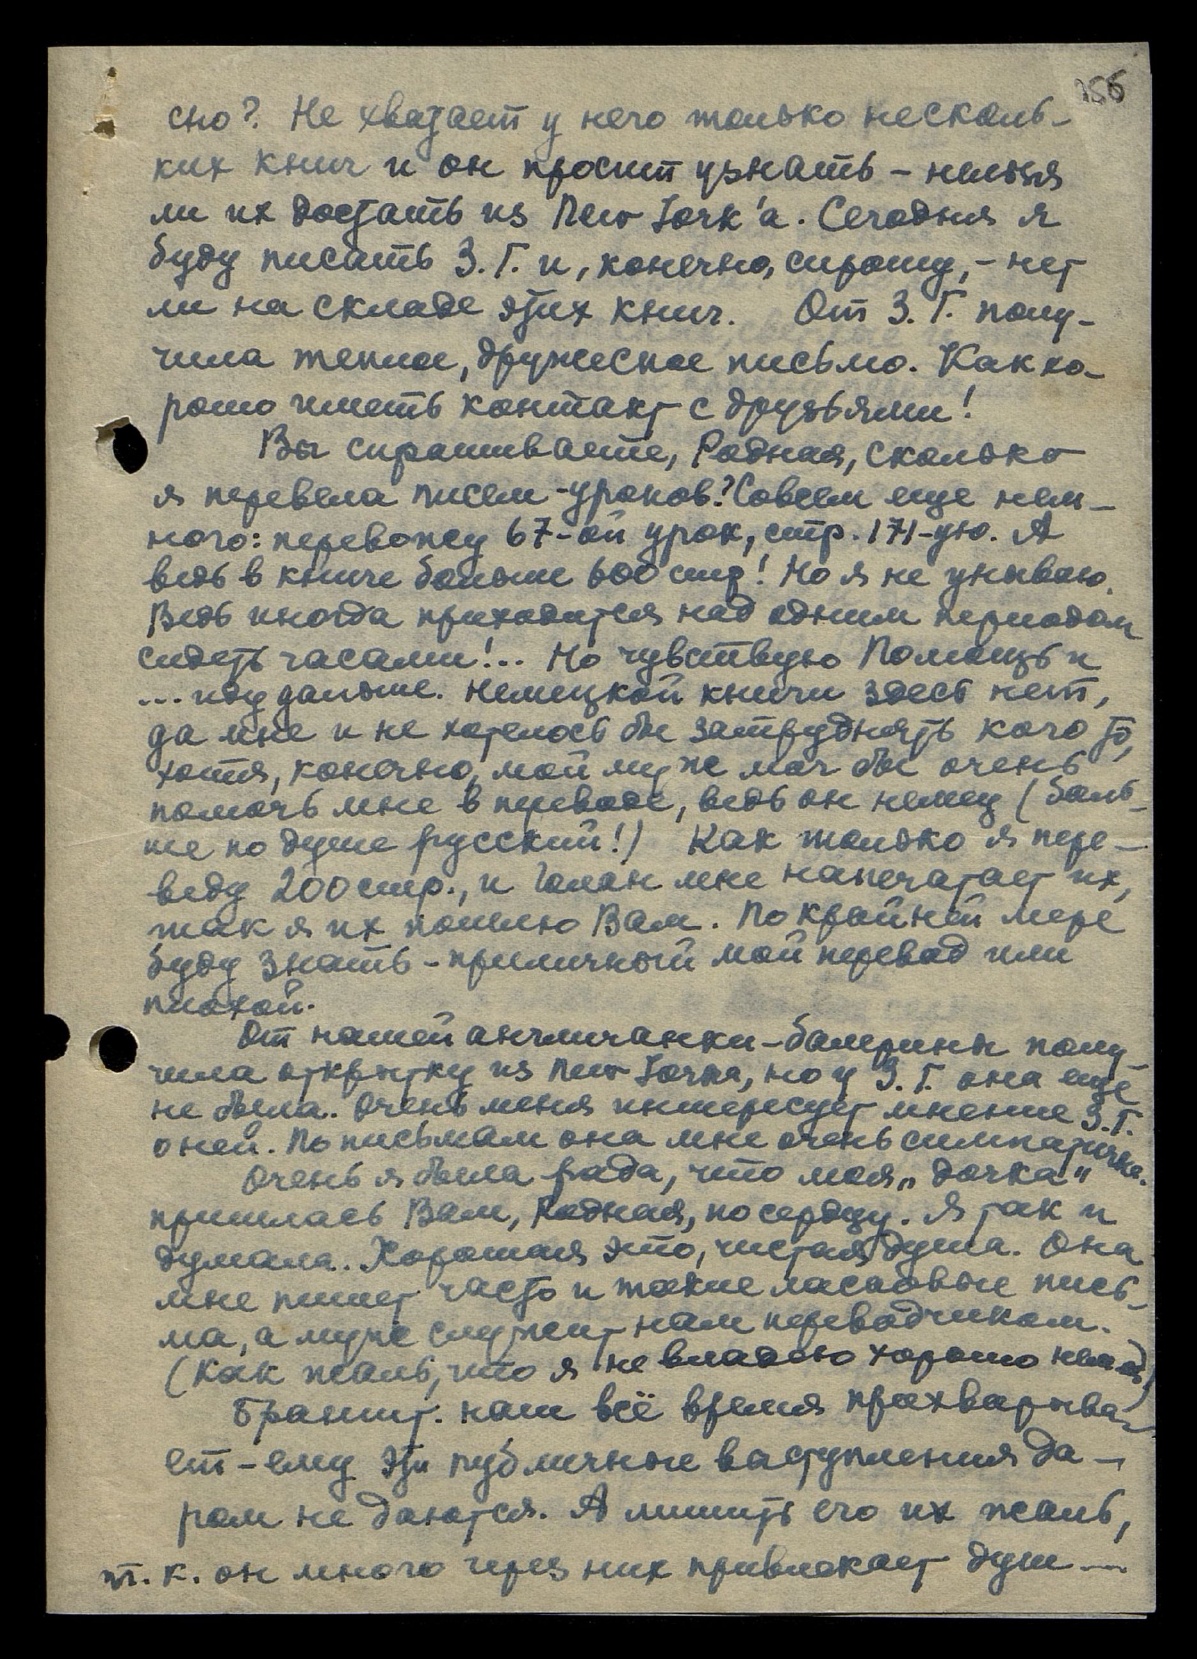 156
сно? Не хватает у него только несколь-
ких книг и он просит узнать – нельзя
ли их достать из New York'а. Сегодня я
буду писать З.Г. и, конечно, спрошу, – нет
ли на складе этих книг. От З.Г. полу-
чила теплое, дружеское письмо. Как хо-
рошо иметь контакт с друзьями!
Вы спрашиваете, Родная, сколько
я перевела писем-уроков? Совсем еще нем-
ного: перевожу 67-ой урок, стр. 171-ую. А
ведь в книге больше 600 стр! Но я не унываю.
Ведь иногда приходится над одним периодом
сидеть часами!.. Но чувствую Помощь и
... иду дальше. Немецкой книги здесь нет,
да мне и не хотелось бы затруднять кого то,
хотя, конечно, мой муж мог бы очень
помочь мне в переводе, ведь он немец (боль-
ше по душе русский!) Как только я пере-
веду 200 стр., и Голан мне напечатает их,
так я их пошлю Вам. По крайней мере
буду знать – приличный мой перевод или
плохой.
От нашей англичанки-балерины полу-
чила открытку из New Yorka, но у З.Г. она еще
не была. Очень меня интересует мнение З.Г.
о ней. По письмам она мне очень симпатична.
Очень я была рада, что моя „дочка"
пришлась Вам, Родная, по сердцу. Я так и
думала. Хорошая это, чистая душа. Она
мне пишет часто и такие ласковые пись-
ма, а муж служит нам переводчиком.
(Как жаль, что я не владею хорошо
наш всё время прихварыва-
ет – ему эти публичные выступления да-
ром не даются. А лишить его их жаль,
т.к. он много через них привлекает душ —